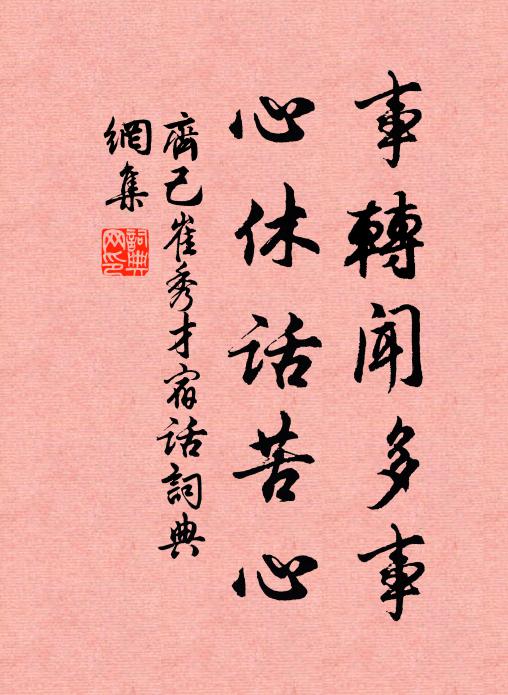 事轉聞多事
心休話苦心
齊己崔秀才宿話詞典
網集
詞典
网印